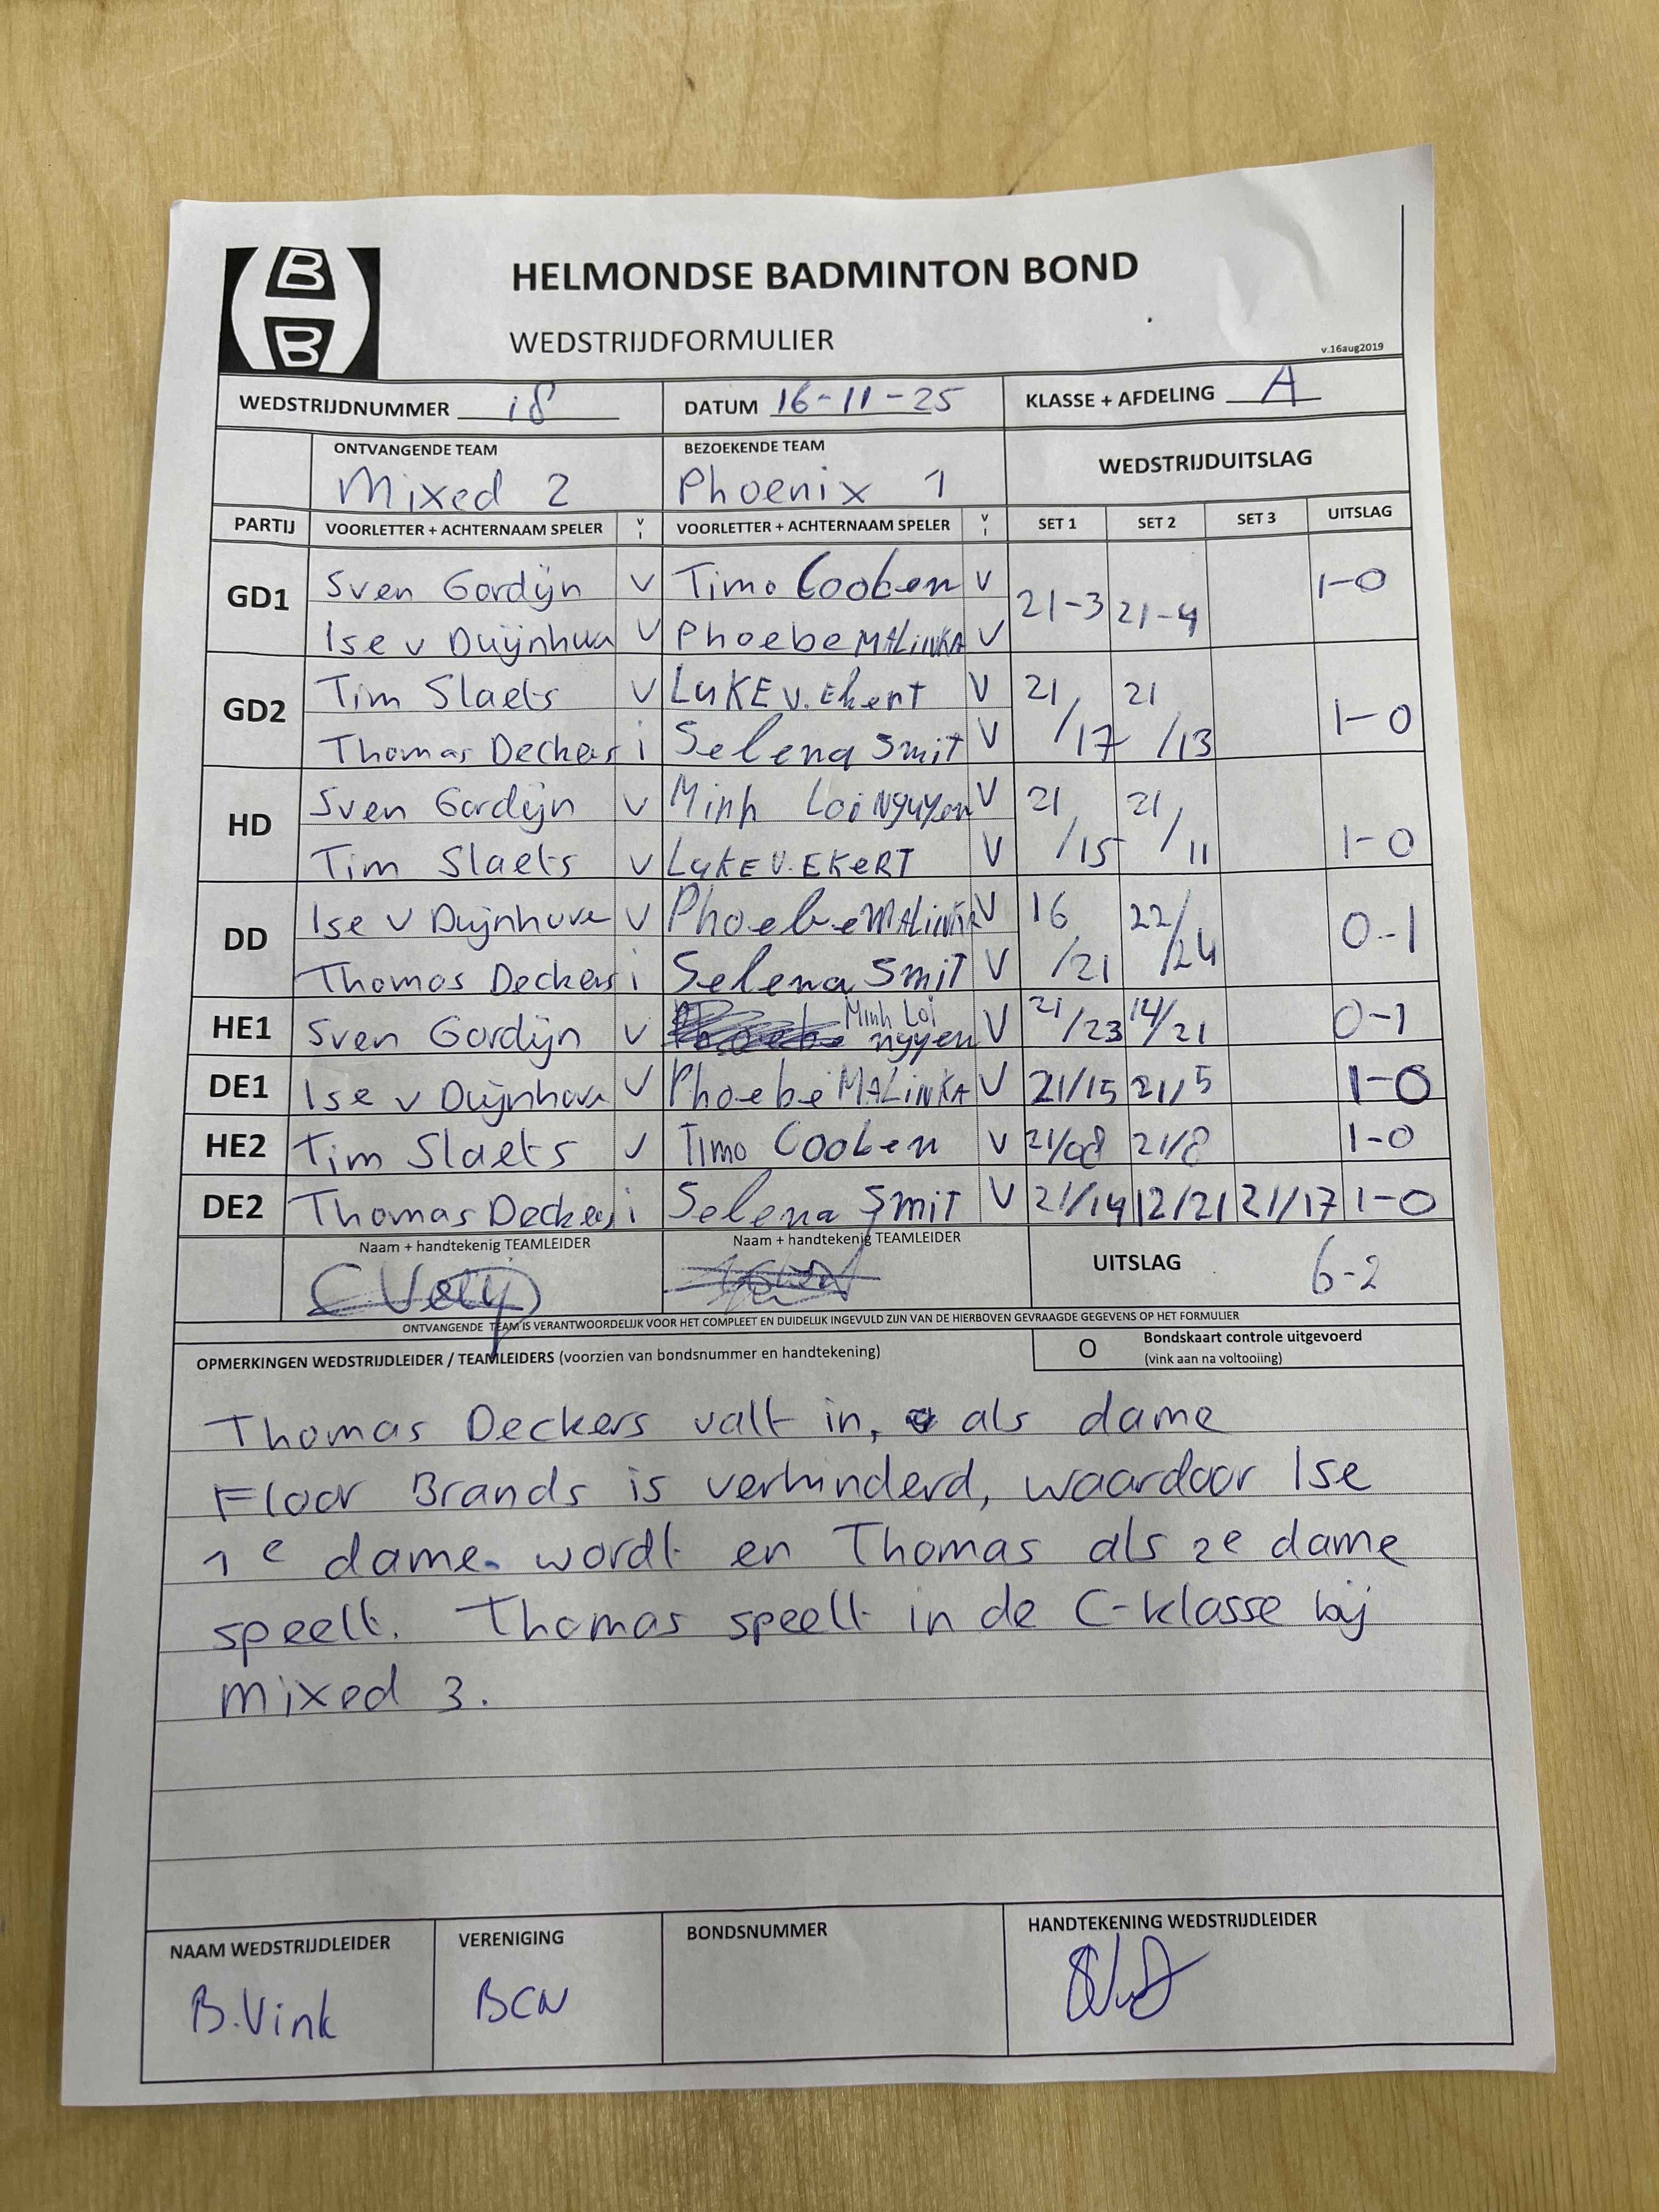 B
B
HELMONDSE BADMINTON BOND
WEDSTRIJDFORMULIER
v.16aug2019
WEDSTRIJDNUMMER 18 DATUM 16-11-25 KLASSE + AFDELING A
ONTVANGENDE TEAM BEZOEKENDE TEAM WEDSTRIJDUITSLAG
Mixed 2 Phoenix 1
PARTIJ VOORLETTER + ACHTERNAAM SPELER V I VOORLETTER + ACHTERNAAM SPELER V I SET 1 SET 2 SET 3 UITSLAG
GD1 Sven Gordijn V Timo Cooben V 21-3 21-4 1-0
Ise v Duijnhuven V Phoebe MALINKA V
GD2 Tim Slaets V LUKE v. Ekert V 21/17 21/13 1-0
Thomas Deckers i Selena Smit V
HD Sven Gordijn V Minh Loi Nguyen V 21/15 21/11 1-0
Tim Slaets V LUKE V. EKERT V
DD Ise v Duijnhuve V Phoebe MALINKA V 16/21 22/24 0-1
Thomas Deckers i Selena Smit V
HE1 Sven Gordijn V Minh Loi ngyen V 21/23 14/21 0-1
DE1 Ise v Duijnhove V Phoebe MALINKA V 21/15 21/5 1-0
HE2 Tim Slaets V Timo Cooben V 21/08 21/8 1-0
DE2 Thomas Deckers i Selena Smit V 21/14 12/21 21/17 1-0
Naam + handtekenig TEAMLEIDER Naam + handtekenig TEAMLEIDER UITSLAG 6-2
ONTVANGENDE TEAM IS VERANTWOORDELIJK VOOR HET COMPLEET EN DUIDELIJK INGEVULD ZIJN VAN DE HIERBOVEN GEVRAAGDE GEGEVENS OP HET FORMULIER
OPMERKINGEN WEDSTRIJDLEIDER / TEAMLEIDERS (voorzien van bondsnummer en handtekening) O Bondskaart controle uitgevoerd
(vink aan na voltooiing)
Thomas Deckers valt in, als dame
Floor Brands is verhinderd, waardoor Ise
1e dame wordt en Thomas als 2e dame
speelt. Thomas speelt in de C-klasse bij
mixed 3.
NAAM WEDSTRIJDLEIDER VERENIGING BONDSNUMMER HANDTEKENING WEDSTRIJDLEIDER
B. Vink BCN